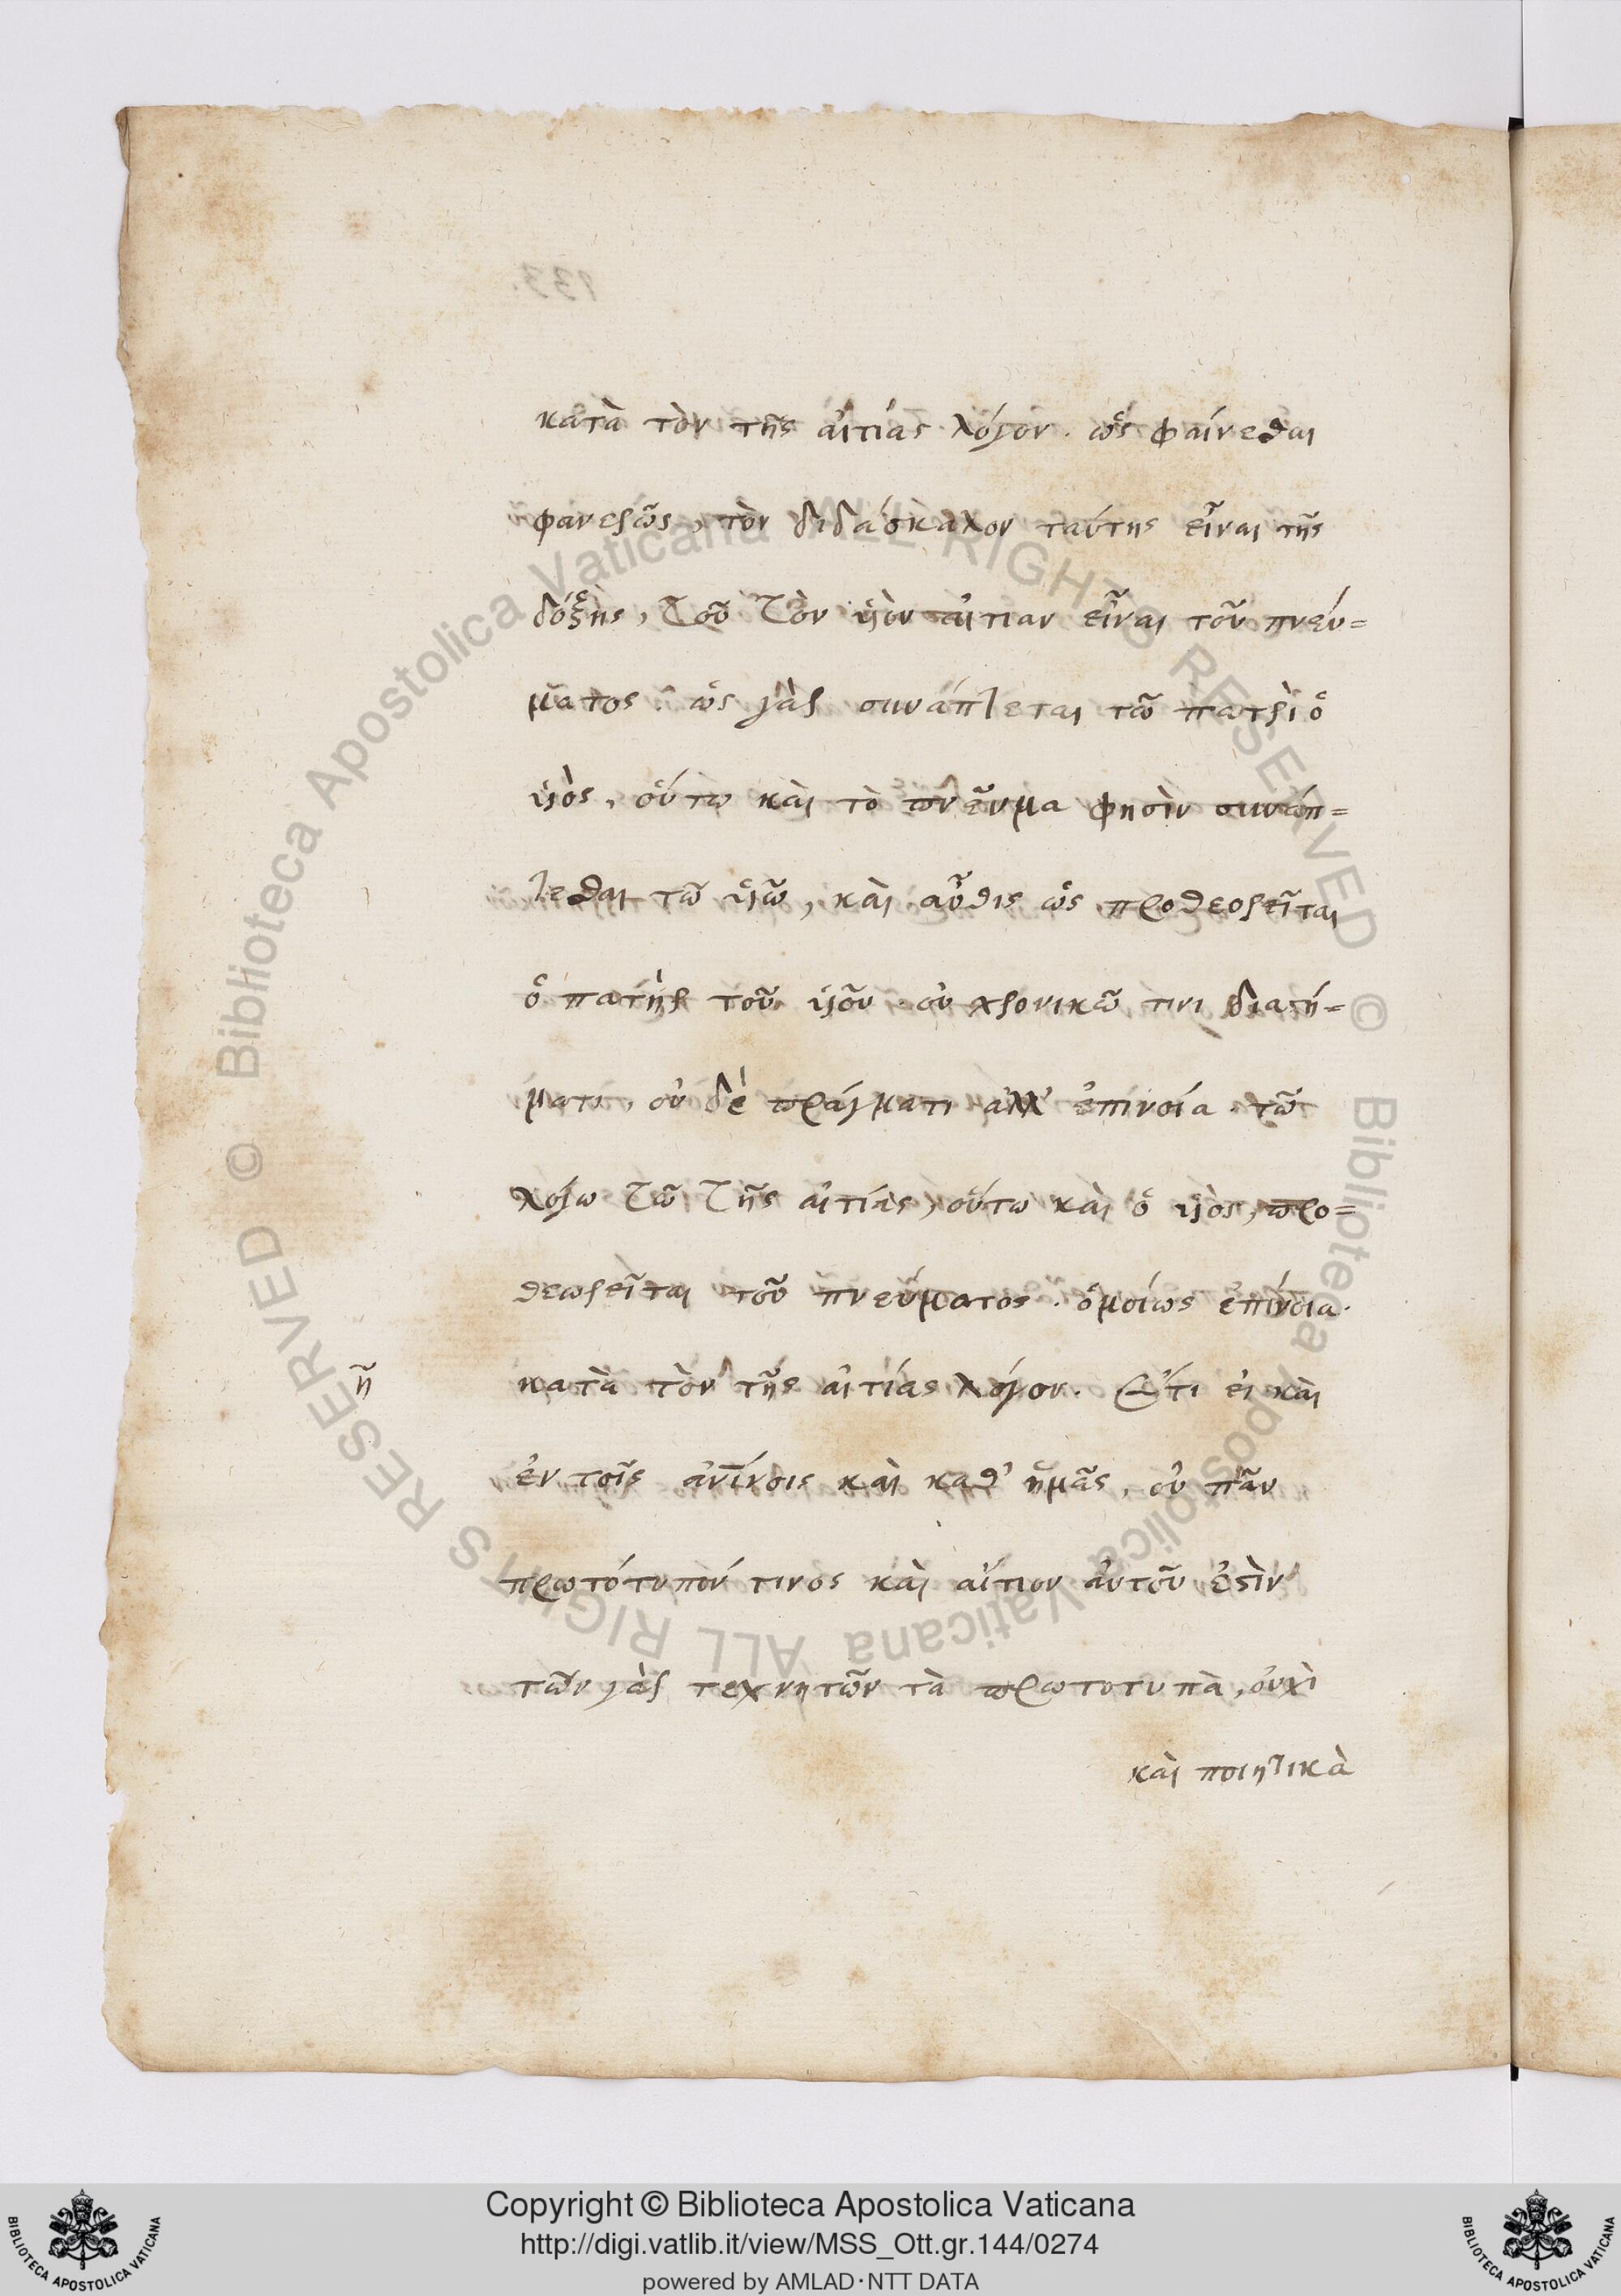 κατὰ τὸν τῆς αἰτίας λόγον. ὡς φαίνεσθαι
φανερῶς, τὸν διδάσκαλον ταύτης εἶναι τῆς
δόξης, τοῦ τὸν υἱὸν αἰτίαν εἶναι τοῦ πνεύ=
ματος. ὡς γὰρ συνάπτεται τῶ πατρὶ ὁ
υἱὸς, οὕτω καὶ τὸ πνεῦμα φησὶν συνάπ=
τεσθαι τῶ υἱῶ, καὶ αὖθις ὡς προθεορεῖται
ὁ πατὴρ τοῦ υἱοῦ οὐ χρονικῶ τινι διαστή=
ματι, οὐ δὲ πράγματι ἀλλ' ἐπινοία τῶ
λόγω τῶ τῆς αἰτίας, οὕτω καὶ ὁ υἱὸς, προ=
θεωρεῖται τοῦ πνεύματος. ὁμοίως ἐπίνοια.
η̃ κατὰ τὸν τῆς αἰτίας λόγον. Ἔτι εἰ καὶ
ἐν τοῖς ἀνίνοις καὶ καθ' ἡμᾶς, οὐ πᾶν
πρωτότυπόν τινος καὶ αἴτιον αὐτοῦ ἐστὶν
τῶν γὰρ τεχνητῶν τὰ πρωτοτυπὰ, οὐχὶ
καὶ ποιητικὰ
133.
Copyright © Biblioteca Apostolica Vaticana
http://digi.vatlib.it/view/MSS_Ott.gr.144/0274
powered by AMLAD·NTT DATA
BIBLIOTECA APOSTOLICA VATICANA
BIBLIOTECA APOSTOLICA VATICANA
© Biblioteca Apostolica Vaticana ALL RIGHTS RESERVED © Biblioteca Apostolica Vaticana ALL RIGHTS RESERVED